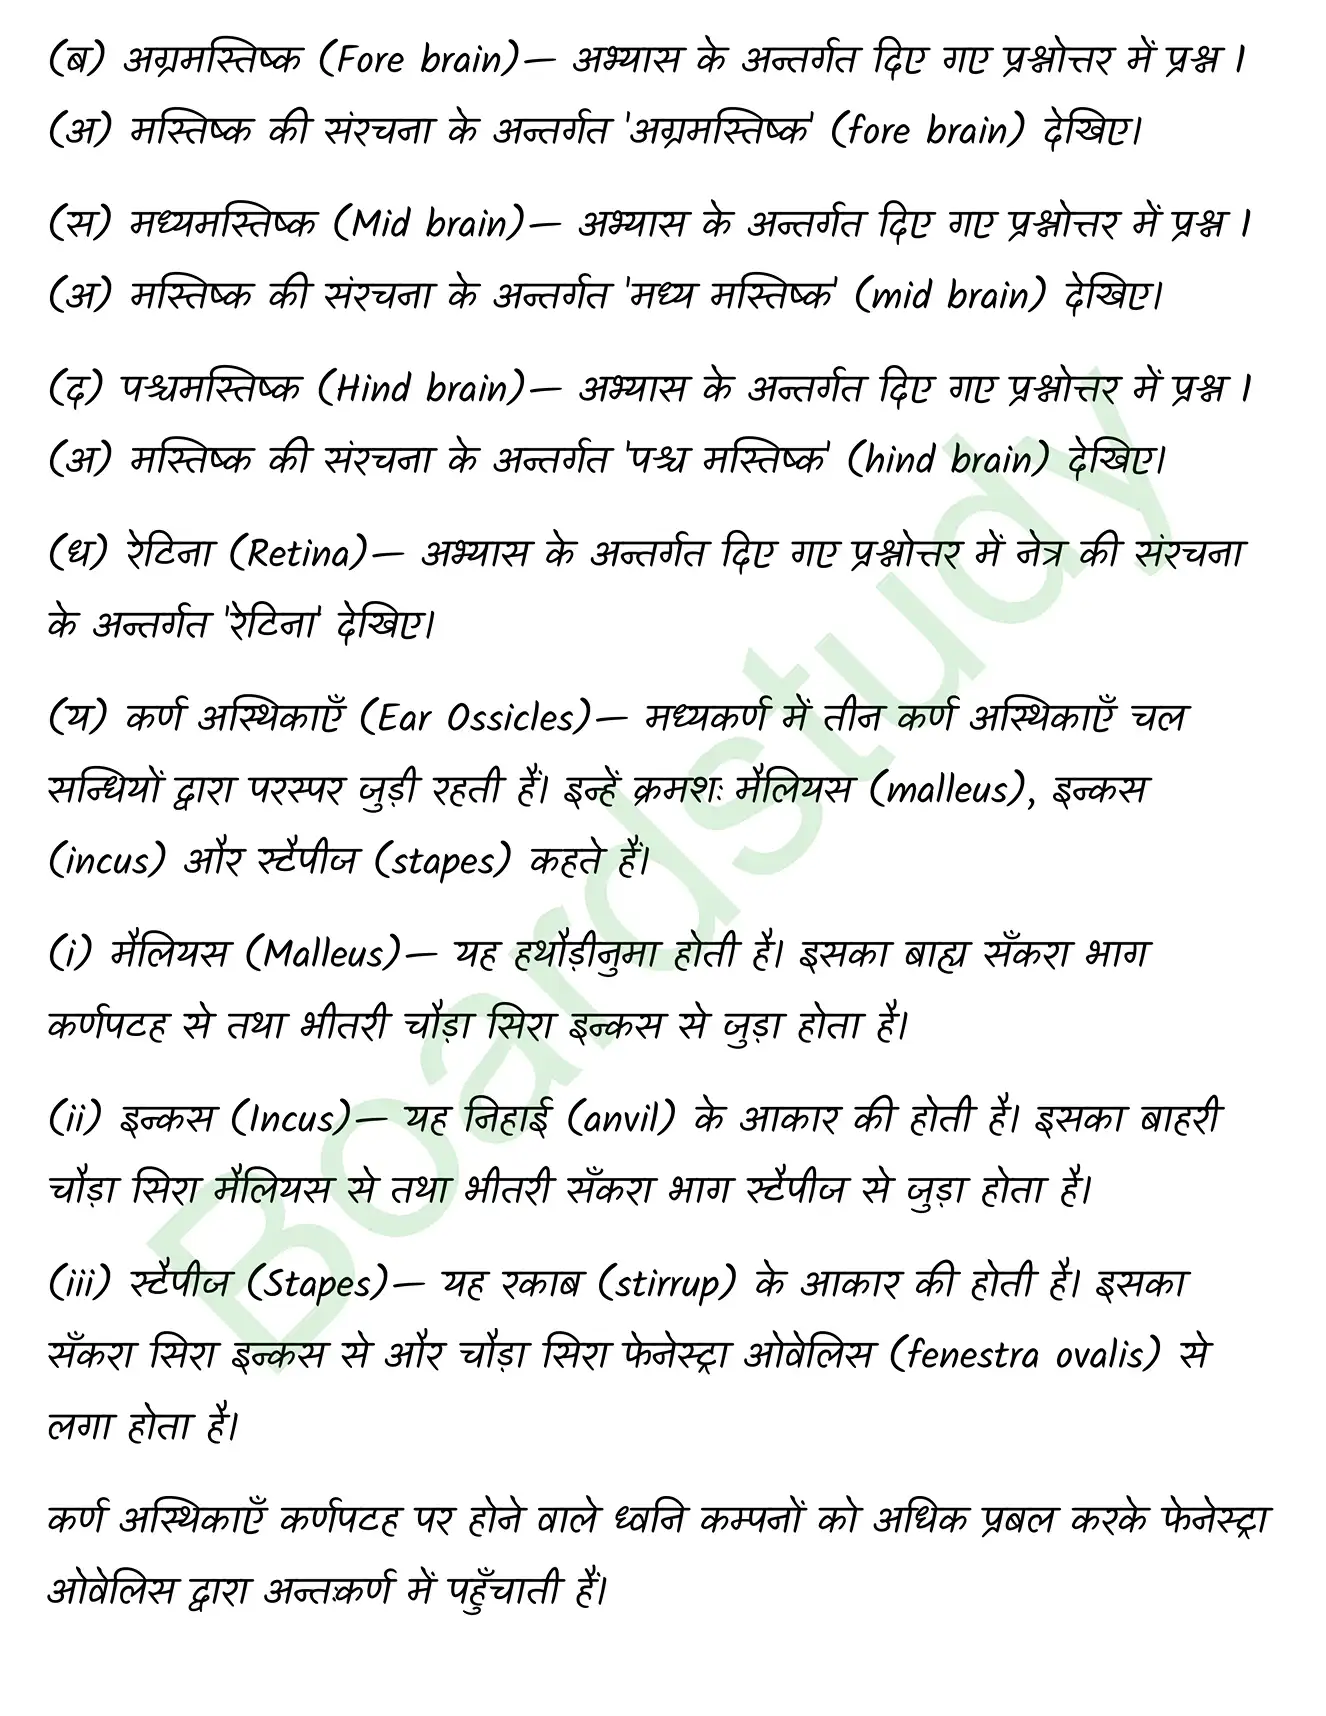 (ब) अग्रमस्तिष्क (Fore brain)— अभ्यास के अन्तर्गत दिए गए प्रश्नोत्तर में प्रश्न ।
(अ) मस्तिष्क की संरचना के अन्तर्गत 'अग्रमस्तिष्क' (fore brain) देखिए।
(स) मध्यमस्तिष्क (Mid brain)— अभ्यास के अन्तर्गत दिए गए प्रश्नोत्तर में प्रश्न ।
(अ) मस्तिष्क की संरचना के अन्तर्गत 'मध्य मस्तिष्क' (mid brain) देखिए।
(द) पश्चमस्तिष्क (Hind brain)— अभ्यास के अन्तर्गत दिए गए प्रश्नोत्तर में प्रश्न ।
(अ) मस्तिष्क की संरचना के अन्तर्गत 'पश्च मस्तिष्क' (hind brain) देखिए।
(ध) रेटिना (Retina)— अभ्यास के अन्तर्गत दिए गए प्रश्नोत्तर में नेत्र की संरचना
के अन्तर्गत 'रेटिना' देखिए।
(य) कर्ण अस्थिकाएँ (Ear Ossicles)— मध्यकर्ण में तीन कर्ण अस्थिकाएँ चल
सन्धियों द्वारा परस्पर जुड़ी रहती हैं। इन्हें क्रमशः मैलियस (malleus), इन्कस
(incus) और स्टैपीज (stapes) कहते हैं।
(i) मैलियस (Malleus)— यह हथौड़ीनुमा होती है। इसका बाह्य सँकरा भाग
कर्णपटह से तथा भीतरी चौड़ा सिरा इन्कस से जुड़ा होता है।
(ii) इन्कस (Incus)— यह निहाई (anvil) के आकार की होती है। इसका बाहरी
चौड़ा सिरा मैलियस से तथा भीतरी सँकरा भाग स्टैपीज से जुड़ा होता है।
(iii) स्टैपीज (Stapes)— यह रकाब (stirrup) के आकार की होती है। इसका
सँकरा सिरा इन्कस से और चौड़ा सिरा फेनेस्ट्रा ओवेलिस (fenestra ovalis) से
लगा होता है।
कर्ण अस्थिकाएँ कर्णपटह पर होने वाले ध्वनि कम्पनों को अधिक प्रबल करके फेनेस्ट्रा
ओवेलिस द्वारा अन्तःकर्ण में पहुँचाती हैं।
Boardstudy